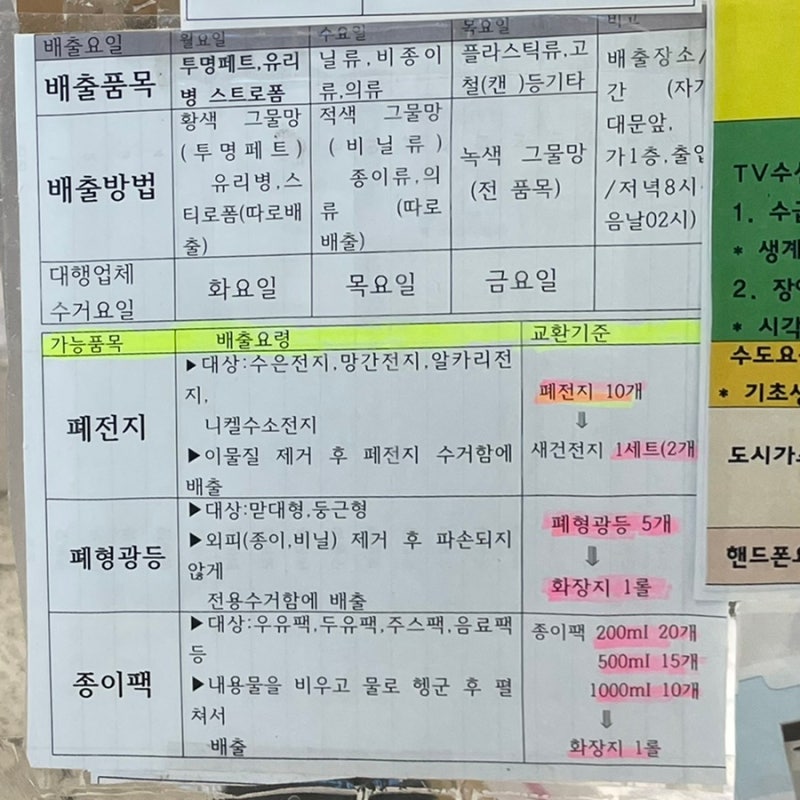 배출요일 월요일 수요일 목요일 비고
배출품목
투명페트,유리
병 스트로폼
닐류,비종이
류,의류
플라스틱류,고
철(캔 )등기타
배출방법
황색 그물망
(투명페트)
유리병,스
티로폼(따로배
출)
적색 그물망
(비닐류)
종이류,의
류 (따로
배출)
녹색 그물망
(전 품목)
배출장소/
간 (자기
대문앞,
가1층,출입
/저녁8시
음날02시)
대행업체
수거요일
화요일 목요일 금요일
가능품목 배출요령 교환기준
폐전지
▶대상:수은전지,망간전지,알카리전
지,
니켈수소전지
▶이물질 제거 후 폐전지 수거함에
배출
폐전지 10개
⇩
새건전지 1세트(2개
폐형광등
▶대상:맏대형,둥근형
▶외피(종이,비닐) 제거 후 파손되지
않게
전용수거함에 배출
폐형광등 5개
⇩
화장지 1롤
종이팩
▶대상:우유팩,두유팩,주스팩,음료팩
등
▶내용물을 비우고 물로 헹군 후 펼
쳐서
배출
종이팩 200ml 20개
500ml 15개
1000ml 10개
⇩
화장지 1롤
TV수신
1. 수급
* 생계
2. 장애
* 시각
수도요
* 기초생
도시가스
핸드폰요